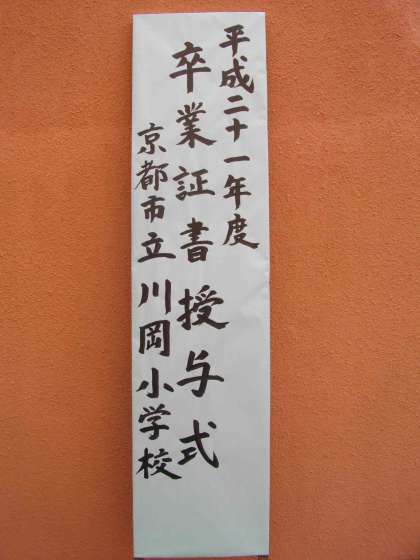 平成二十一年度
卒業証書授与式
京都市立川岡小学校